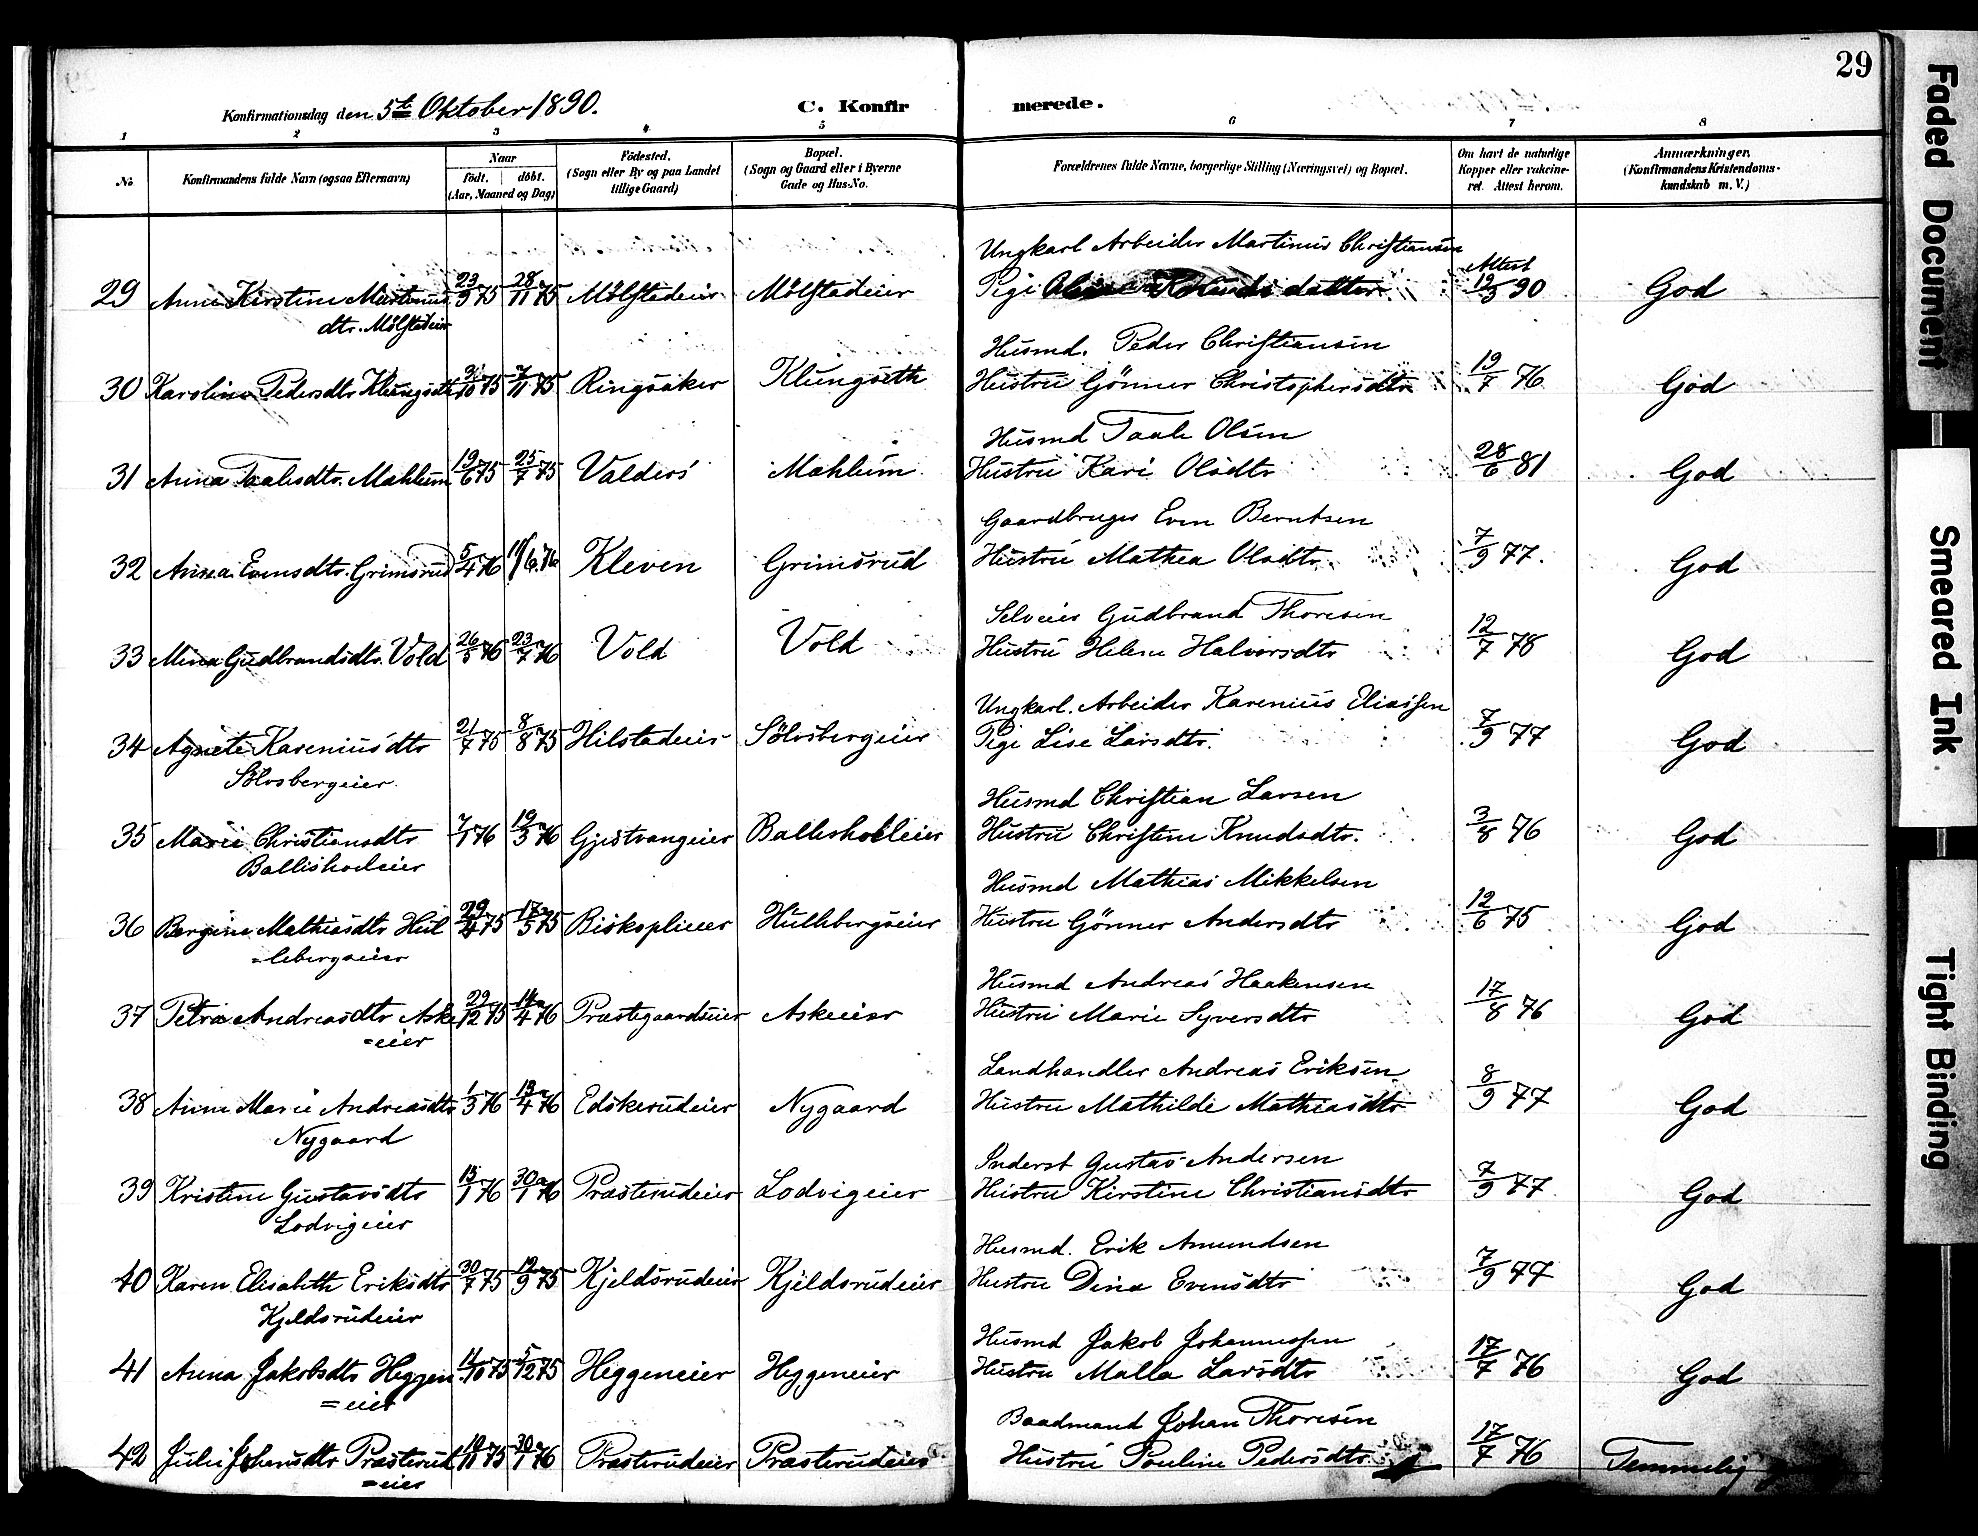 29
Konfirmationsdag den 5te Oktober 1890.
C. Konfirmerede.
1 2 3 4 5 6 7 8
No
Konfirmandens fulde Navn (ogsaa Efternavn)
Naar
født. døbt.
(Aar, Maaned og Dag)
Födested.
(Sogn eller By og paa Landet
tillige Gaard)
Bopæl.
(Sogn og Gaard eller i Byerne
Gade og Hus-No.
Forældrenes fulde Navne, borgerlige Stilling (Næringsvei) og Bopæl.
Om havt de naturlige
Kopper eller vakcine-
ret. Attest herom.
Anmærkninger.
(Konfirmandens Kristendoms-
kundskab m. V.)
Ungkarl Arbeider Martinus Christiansen
Attest
29 Anne Kirstine Martinus 23/9 75 28/11 75 Mölstadeier Mölstadeier Pige datter 12/9 90 God
dtr. Mölstadeier
Husmd. Peder Christiansen
30 Karoline Pedersdtr Klungseth 75 7/11 75 Ringsaker Klungseth Hustru Gönner Christophersdtr 19/7 76 God
Husmd Taale Olsen
31 Anna Taalesdtr. Mæhlum 19/6 75 25/7 75 Valders Mæhlum Hustru Kari Olsdtr 28/6 81 God
Gaardbruger Even Berntsen
32 Anna Evensdtr. Grimsrud 5/4 76 11/6. 76 Kleven Grimsrud Hustru Mathea Olsdtr. 7/9 77. God
Selveier Gudbrand Thoresen
33 Mina Gudbrandsdtr. Vold 26/5 76 23/7 76 Vold Vold Hustru Helene Halvorsdtr 12/7 78 God
Ungkarl. Arbeider Karenius Eliassen
34 Agnete Kareniusdtr 21/7 75 8/8 75 Hilstadeier Sölvsbergeier Pige Lise Larsdtr. 7/9 77 God
Sölvsbergeier.
Husmd Christian Larsen
35 Marie Christiansdtr 7/1 76 19/3 76 Gjestvangeier Ballishoeleier Hustru Christine Knudsdtr. 3/8 76 God
Ballishoeleier
Husmd Mathias Mikkelsen
36 Bergine Mathiasdtr Hul 29/4 75 17/5 75 Biskoplieier Hullebergseier Hustru Gönner Andersdtr 12/6 75 God
=lebergseier
Husmd Andreas Haakensen
37 Petra Andreasdtr Aske 29/12 75 14/4 76 Præstegaardseier Askeeier Hustru Marie Syversdtr 17/8 76 God
=eier
Landhandler Andreas Eriksen
38 Anne Marie Andreasdtr 1/3 76 13/4 76 Edskerudeier Nygaard Hustru Mathilde Mathiasdtr 8/9 77 God
Nygaard
Inderst Gustav Andersen
39 Kristine Gustavsdtr 15/1 76 30/1 76 Præsterudeier Lodvigeier Hustru Kirstine Christiansdtr 7/9 77 God
Lodvigeier
Husmd. Erik Amundsen
40 Karen Elisabeth Eriksdtr 30/7 75 12/9 75 Kjeldsrudeier Kjeldsrudeier Hustru Dina Evensdtr 7/9 77 God
Kjeldsrudeier
Husmd Jakob Johannessen
41 Anna Jakobsdtr Heggen 11/10 75 5/12 75 Heggeneier Heggeneier Hustru Malla Larsdtr 17/7 76 God
=eier
Baadmand Johan Thoresen
42 Julie Johansdtr Præsterud 19/11 75 30/1 76 Præsterudeier Præsterudeier Hustru Pouline Pedersdtr 17/7 76 Temmelig
=eier
Faded Document
Smeared Ink
Tight Binding